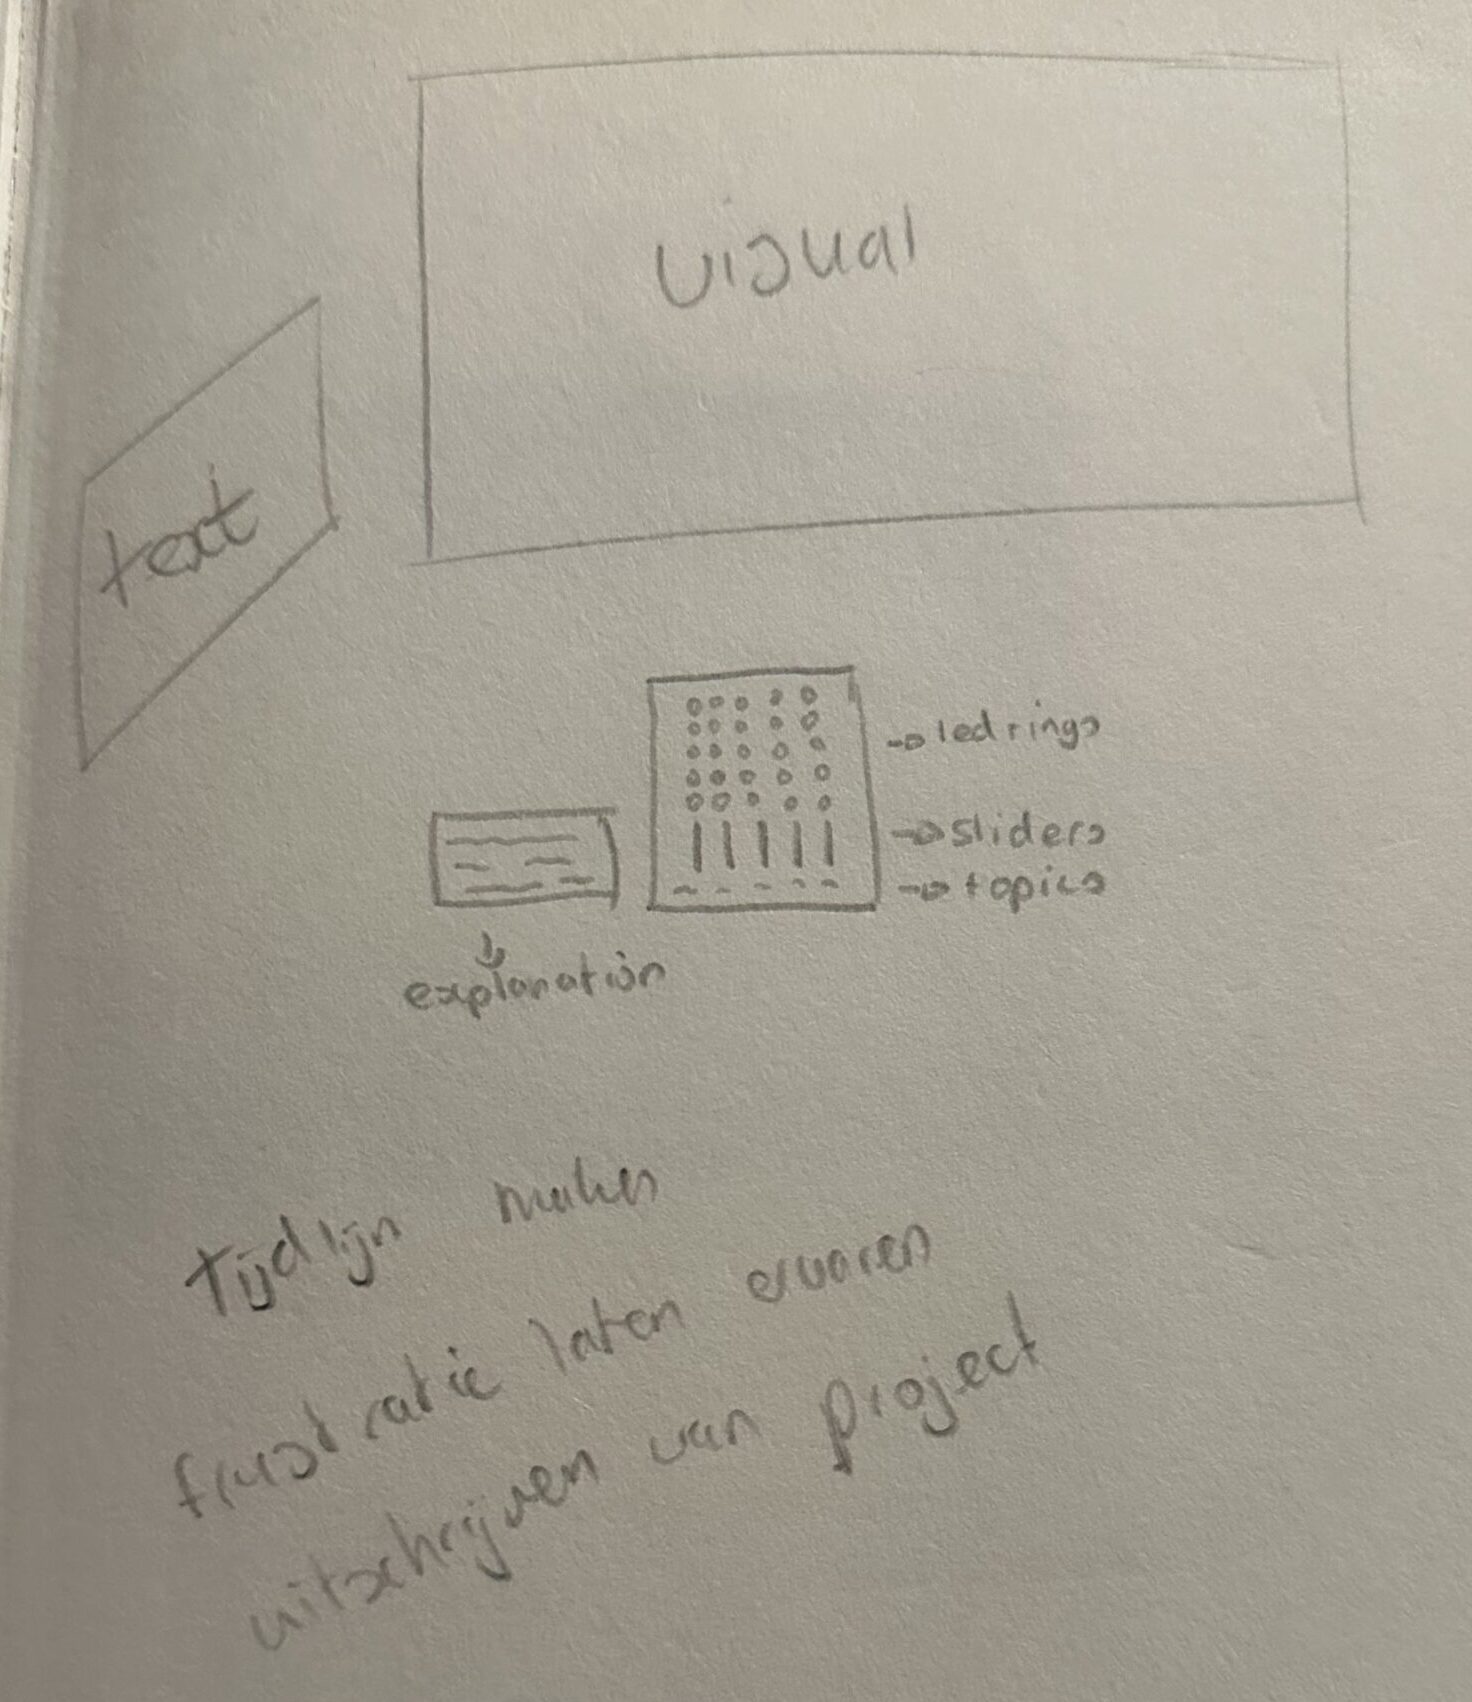 visual
text
led rings
sliders
topics
explanation
tijdlijn maken
frustratie laten ervaren
uitschrijven van project